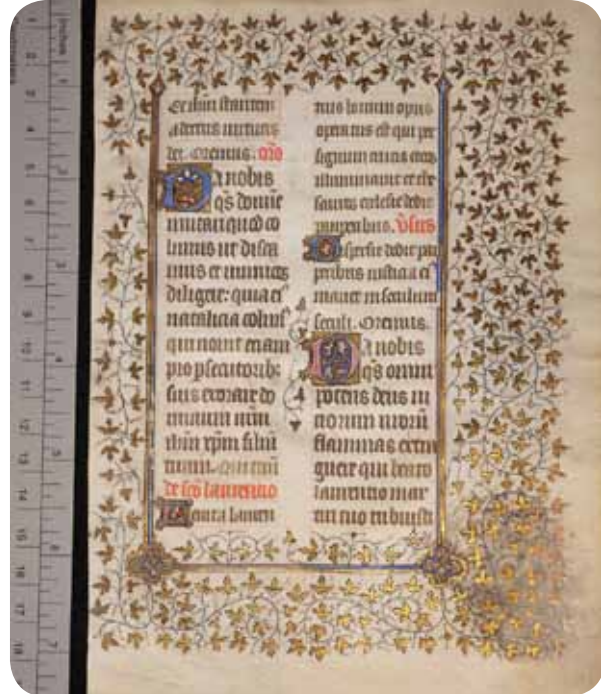 Et ihm stantem
a dextris uirtutis
dei. Oremus. Oro
Da nobis
qs domine
imitari quod co
limus ut disca
mus et inimicos
diligere: quia eiꝰ
natalicia colimꝰ
qui nouit etiam
pro psecutorib;
suis exorare do
minum nrm̄
ihm xpm filiū
tuum. Qui tecū
de sco laurentio
Leuita lauren
tius bonum opus
operatus est qui per
signum crucis cecos
illuminauit et the
sauros ecclesie dedit
pauperibus. Vsus
Dispersit dedit pau
peribus iusticia eiꝰ
manet in seculum
seculi. Oremus.
Da nobis
qs omni
potens deus ui
ciorum nrorū
flammas extin
guere qui beato
laurentio mar
tiri tuo tribuisti